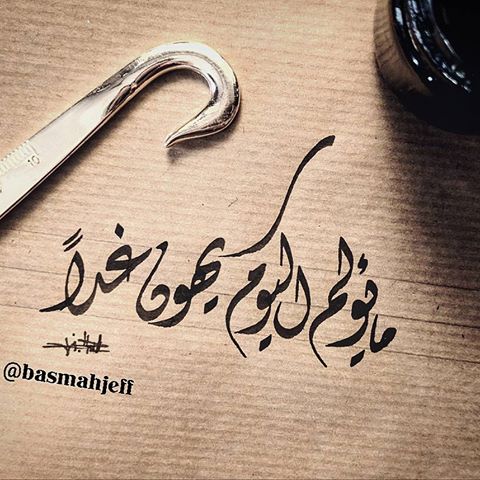 ما يؤلم اليوم يهون غداً
@basmahjeff